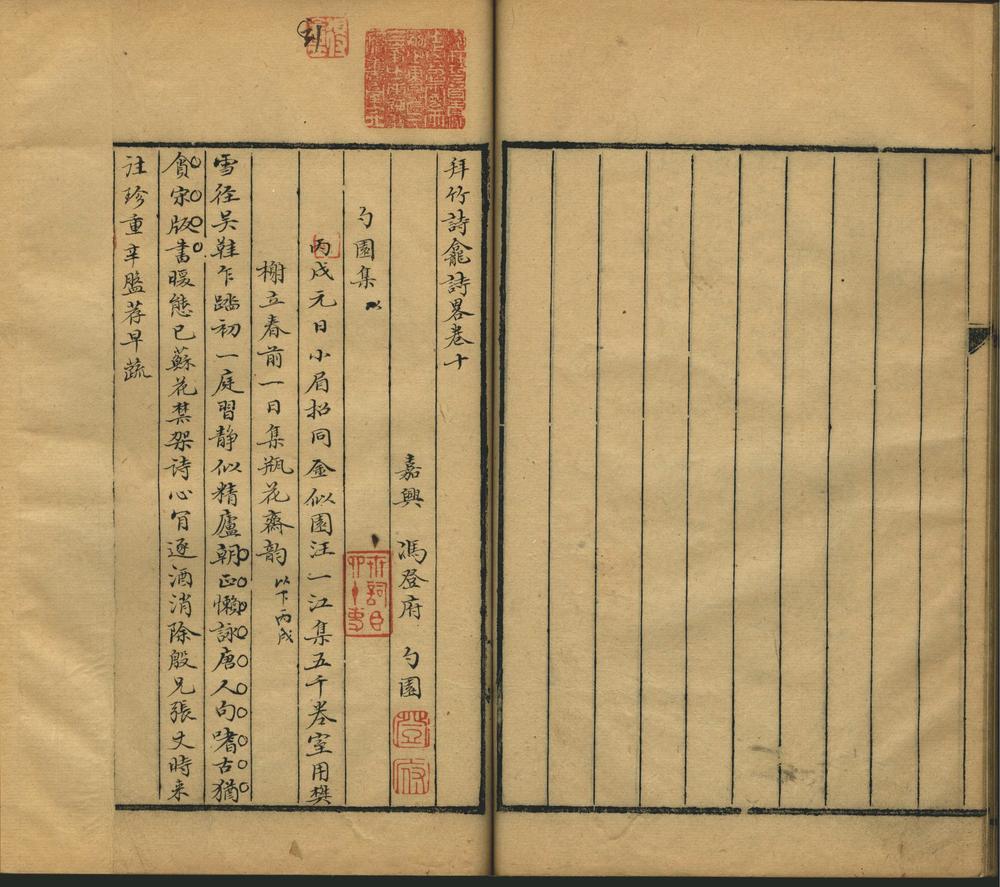 拜竹詩龕詩畧卷十
嘉興　馮登府　勺園
勺園集
丙戌元日小眉招同金似園汪一江集五千卷室用樊
榭立春前一日集瓶花齋韵以下丙戌
雪徑吴鞋乍踏初一庭習静似精廬朝正懶詠唐人句嗜古猶
賓宋版書暖態已蘇花禁架诗心肎逐酒消除殷兄張丈時来
注珍重辛盤荐早蔬
登府